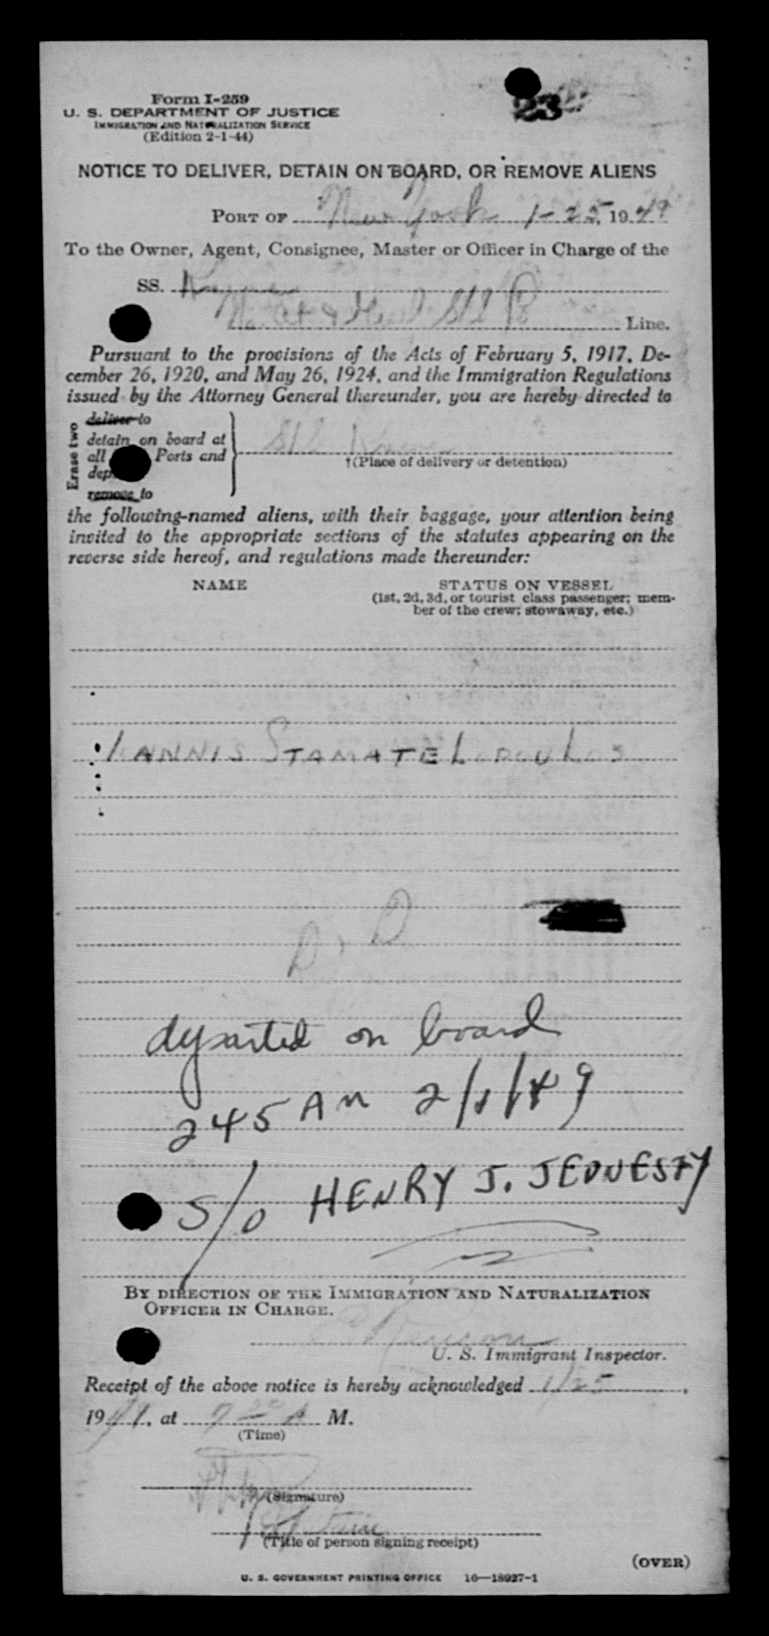 Form I-259
23
U. S. DEPARTMENT OF JUSTICE
IMMIGRATION AND NATURALIZATION SERVICE
(Edition 2-1-44)
NOTICE TO DELIVER, DETAIN ON BOARD, OR REMOVE ALIENS
PORT OF New York 1-25 1949
To the Owner, Agent, Consignee, Master or Officer in Charge of the
SS.
Line.
Pursuant to the provisions of the Acts of February 5, 1917, De-
cember 26, 1920, and May 26, 1924, and the Immigration Regulations
issued by the Attorney General thereunder, you are hereby directed to
Erase two
deliver to
detain on board at
all Ports and
remove to
†(Place of delivery or detention)
the following-named aliens, with their baggage, your attention being
invited to the appropriate sections of the statutes appearing on the
reverse side hereof, and regulations made thereunder:
NAME STATUS ON VESSEL
(1st, 2d, 3d, or tourist class passenger; mem-
ber of the crew; stowaway, etc.)
IANNIS STAMATELOPOULOS
D & D
departed on board
245 AM 2/1/49
S/O HENRY J. JEDNESTY
BY DIRECTION OF THE IMMIGRATION AND NATURALIZATION
OFFICER IN CHARGE.
U. S. Immigrant Inspector.
Receipt of the above notice is hereby acknowledged 1/25,
1949, at 7 30 A M.
(Time)
(Signature)
(Title of person signing receipt)
(OVER)
U. S. GOVERNMENT PRINTING OFFICE 16—18927-1